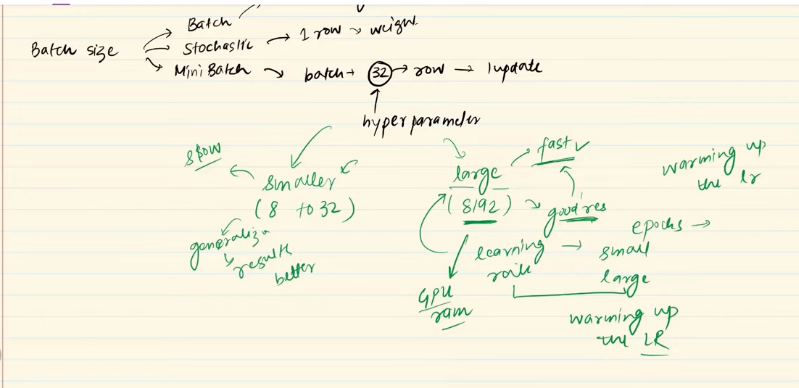 Batch
Batch size
Stochastic → 1 row → weight
Mini Batch → batch → 32 → row → 1 update
hyperparameter
slow
smaller
(8 to 32)
generaliz
result
better
large
(8192)
fast ✓
good res
GPU
ram
learning
rate
→ small
large
epochs →
warming up
the lr
warming up
the LR